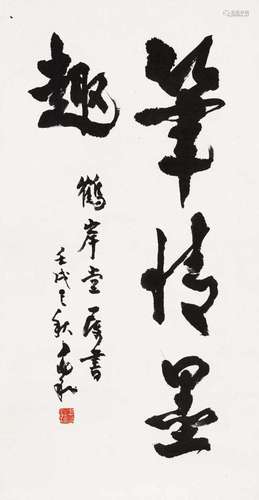 筆情墨
趣
鶴岸堂屬書
壬戌之秋